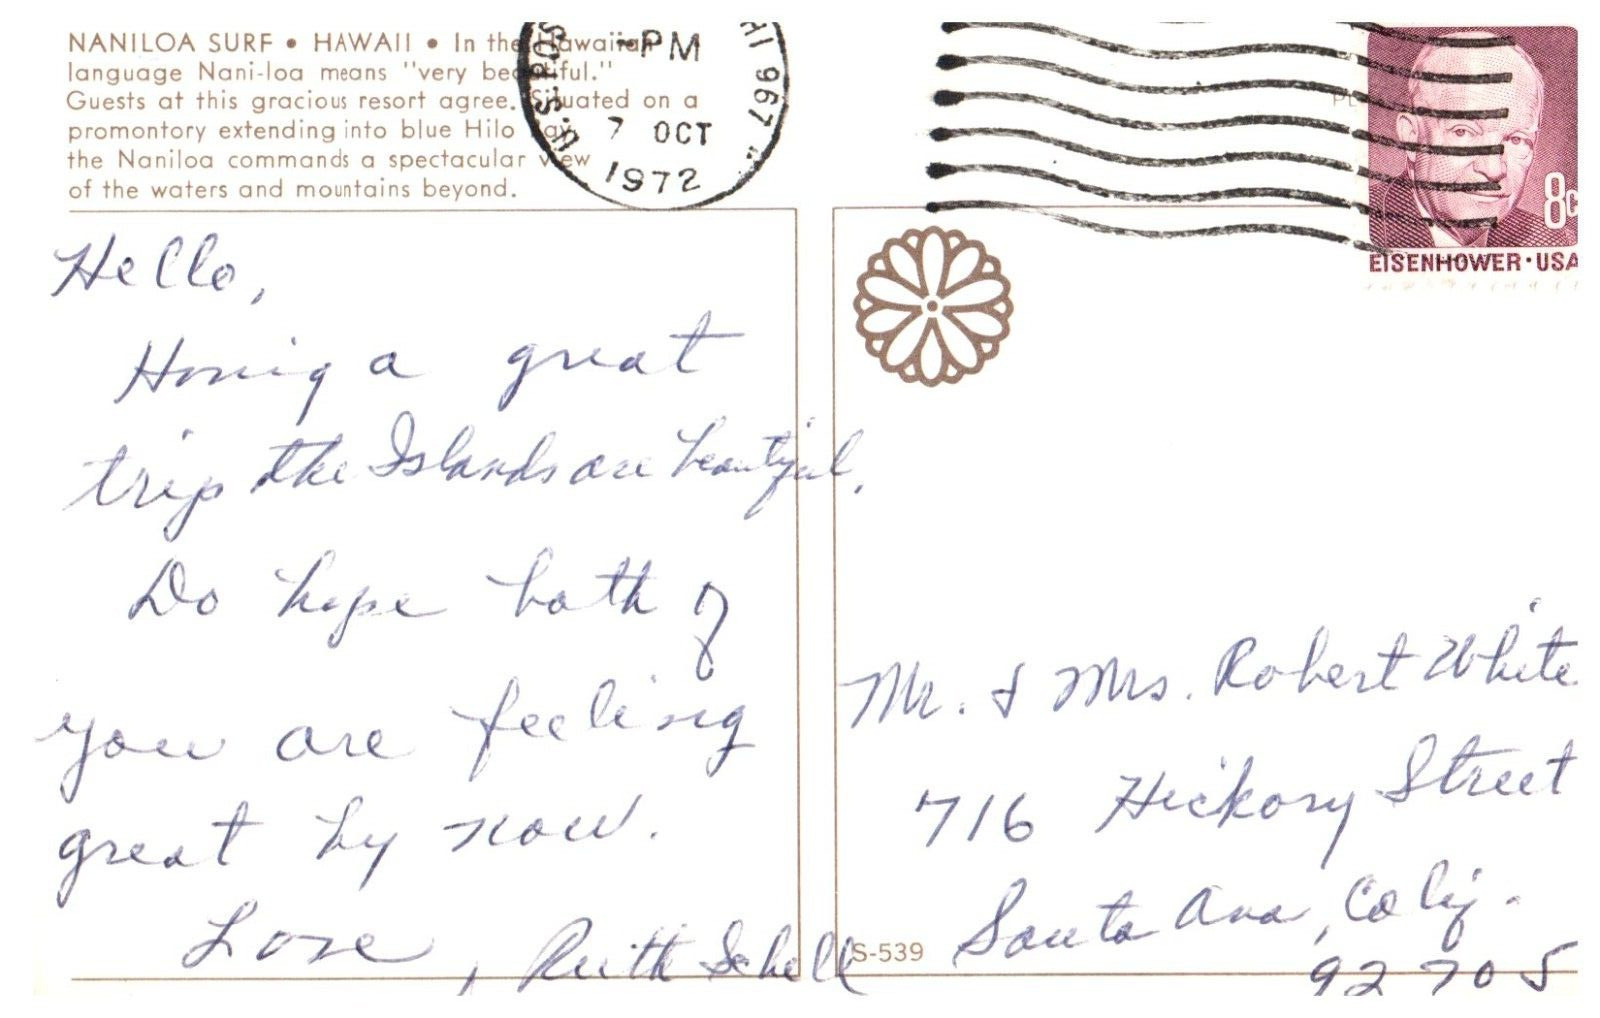 NANILOA SURF • HAWAII • In the Hawaiian
language Nani-loa means "very beautiful."
Guests at this gracious resort agree. Situated on a
promontory extending into blue Hilo Bay,
the Naniloa commands a spectacular view
of the waters and mountains beyond.
U.S. POS
PM
HI 967
7 OCT
1972
PL
8c
EISENHOWER • USA
Hello,
Having a great
trip the Islands are beautiful.
Do hope both of
you are feeling
great by now.
Love, Ruth Schell
S-539
Mr. & Mrs. Robert White
716 Hickory Street
Santa Ana, Calif.
92705